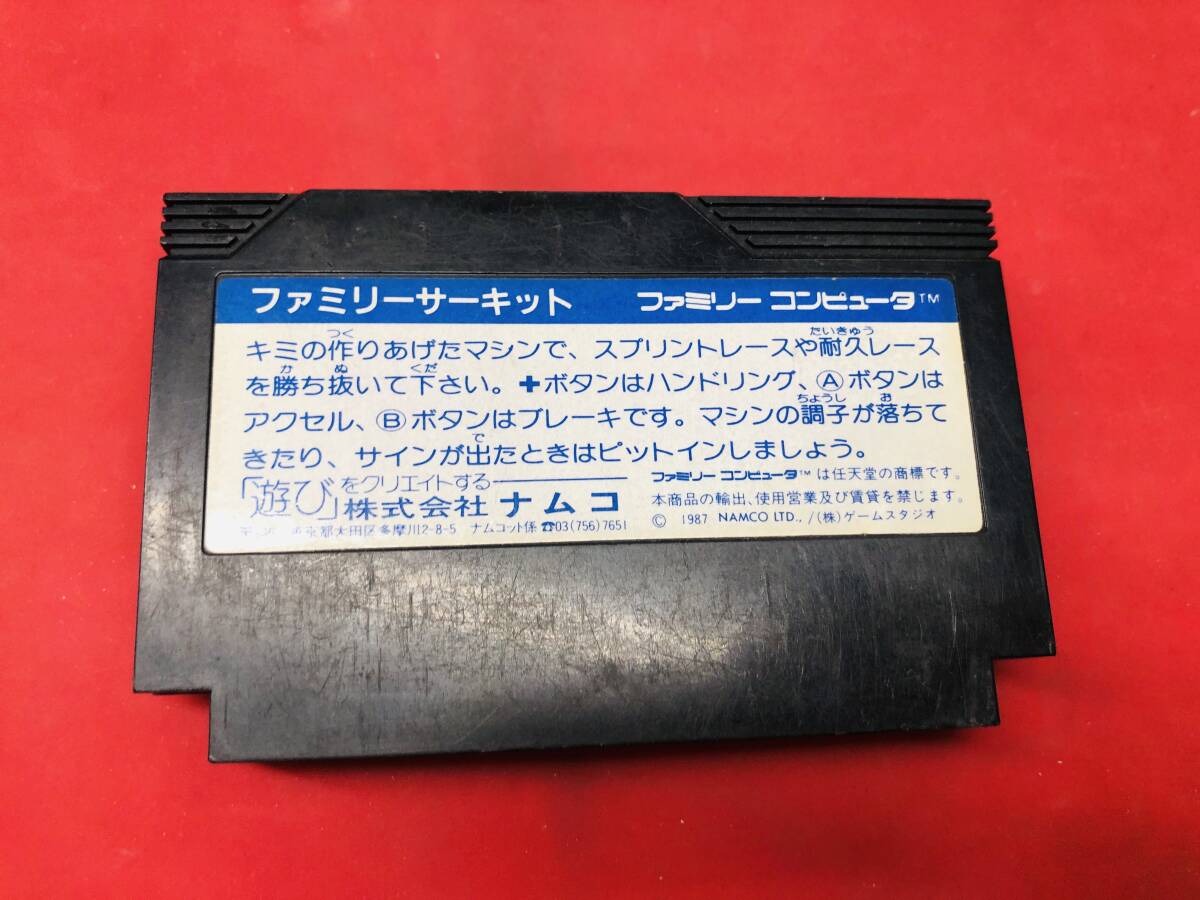 ファミリーサーキット ファミリー コンピュータ™
キミの作りあげたマシンで、スプリントレースや耐久レース
を勝ち抜いて下さい。✚ボタンはハンドリング、Ⓐボタンは
アクセル、Ⓑボタンはブレーキです。マシンの調子が落ちて
きたり、サインが出たときはピットインしましょう。
「遊び」をクリエイトする
株式会社 ナムコ
京都大田区多摩川2-8-5 ナムコット係 ☎03(756)7651
ファミリー コンピュータ™ は任天堂の商標です。
本商品の輸出、使用営業及び賃貸を禁じます。
© 1987 NAMCO LTD., /(株)ゲームスタジオ